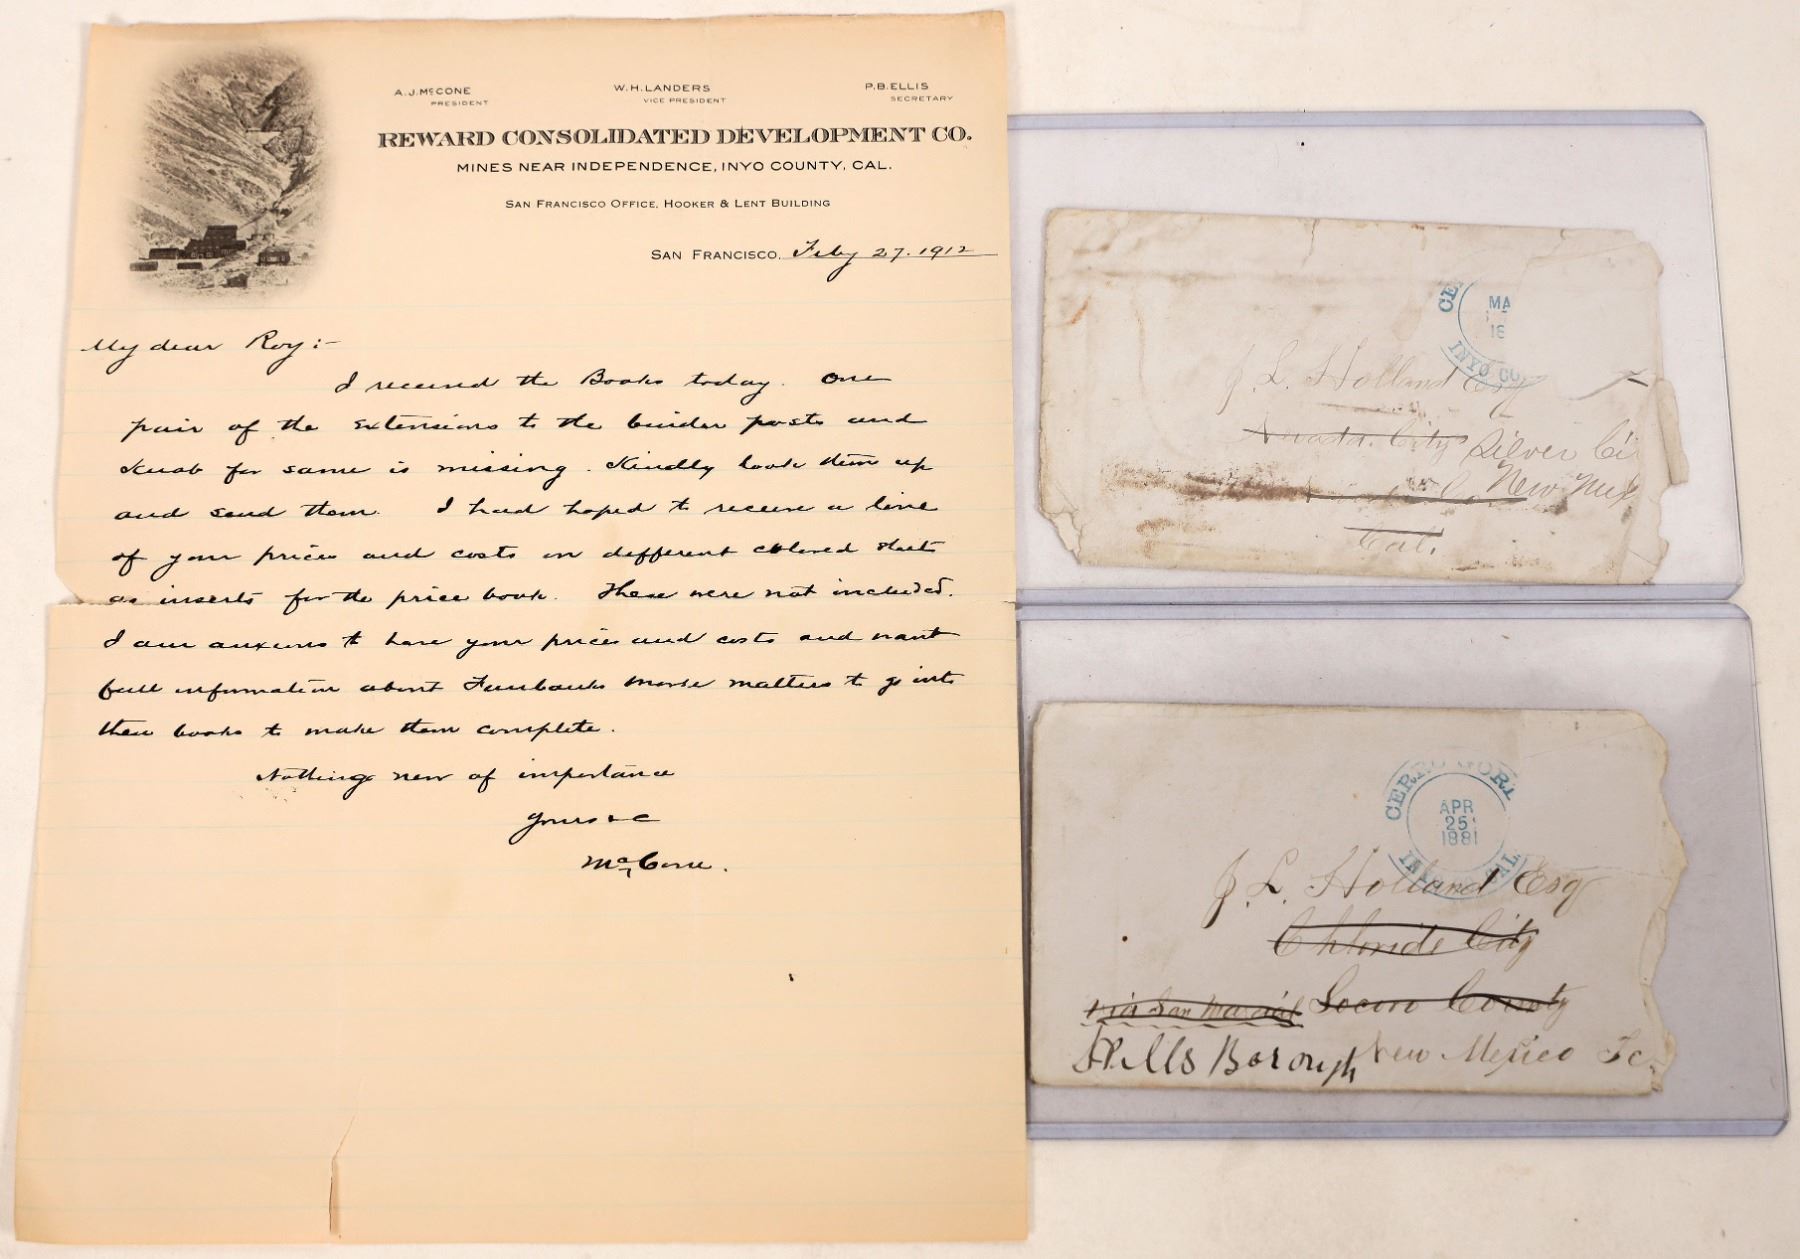 A.J. McCONE
PRESIDENT
W.H. LANDERS
VICE PRESIDENT
P.B. ELLIS
SECRETARY
REWARD CONSOLIDATED DEVELOPMENT CO.
MINES NEAR INDEPENDENCE, INYO COUNTY, CAL.
SAN FRANCISCO OFFICE, HOOKER & LENT BUILDING
SAN FRANCISCO, Feby 27. 1912
My dear Roy:-
I received the Books today. One
pair of the extensions to the binder posts and
knob for same is missing. Kindly look them up
and send them. I had hoped to receive a line
of your prices and costs on different colored sheets
as inserts for the price book. These were not included.
I am anxious to have your prices and costs and want
full information about Fairbanks Morse matters to go into
these books to make them complete.
Nothing new of importance
Yours &c
McCone.
CE
MA
18
INYO CO
J. L. Holland Esq
Nevada City Silver Ci
New Mex
Cal.
CERRO GORD
APR
25
1881
INYO CAL
J. L. Holland Esq
Chloride City
via San Marcial Socoro County
Hills Borough New Mexico Te